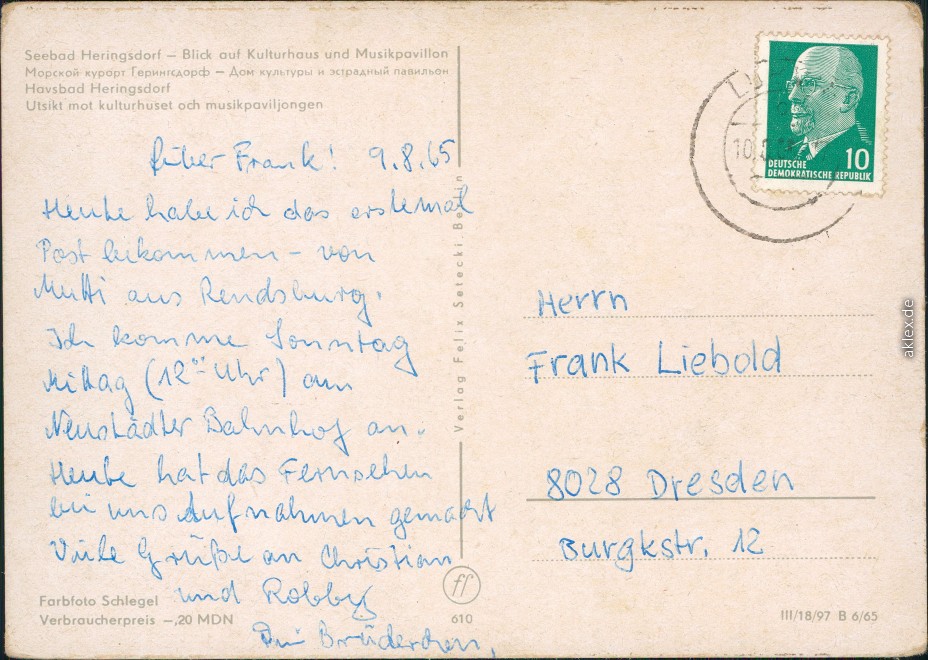 Seebad Heringsdorf – Blick auf Kulturhaus und Musikpavillon
Морской курорт Герингсдорф – Дом культуры и эстрадный павильон
Havsbad Heringsdorf
Utsikt mot kulturhuset och musikpaviljongen
Lieber Frank! 9.8.65
Heute habe ich das erstemal
Post bekommen – von
Mutti aus Rendsburg.
Ich komme Sonntag
Mittag (12 Uhr) am
Neustädter Bahnhof an.
Heute hat das Fernsehen
bei uns Aufnahmen gemacht
Viele Grüße an Christian
und Robby
Dein Brüderchen,
Farbfoto Schlegel
Verbraucherpreis –,20 MDN
Verlag Felix Setecki, Berlin
ff
610
10
DEUTSCHE
DEMOKRATISCHE REPUBLIK
Herrn
Frank Liebold
8028 Dresden
Burgkstr. 12
III/18/97 B 6/65
aklex.de